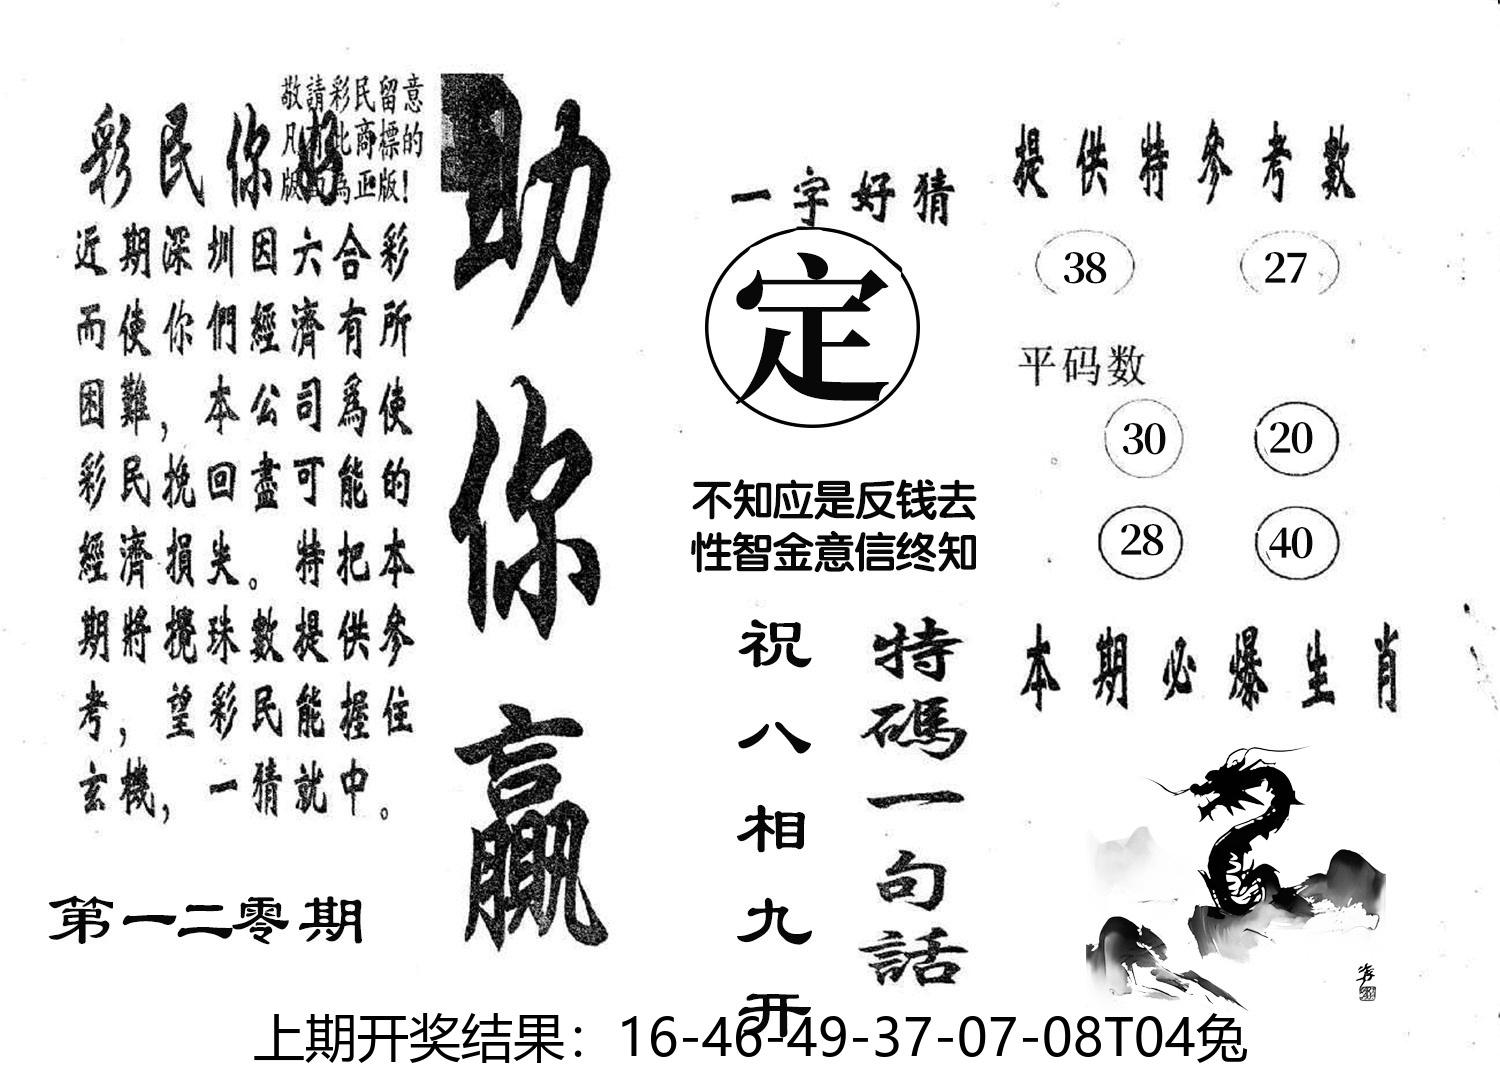 敬請彩民留意
凡有此商標的
版面為正版！
彩民你好
近期深圳因六合彩
而使你們經濟有所
困難，本公司爲使
彩民挽回盡可能的
經濟損失。特把本
期將攪珠數提供參
考，望彩民能握住
玄機，一猜就中。
第一二零期
助你贏
一字好猜
定
不知应是反钱去
性智金意信终知
特碼一句話
祝八相九开
提供特參考數
38 27
平码数
30 20
28 40
本期必爆生肖
上期开奖结果：16-46-49-37-07-08T04兔